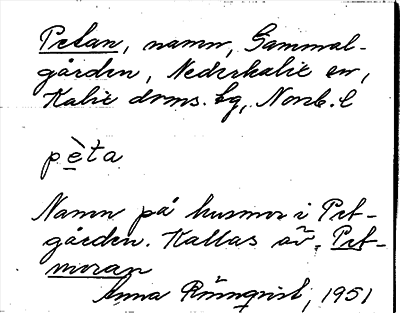 Petan, namn, Gammal-
gården, Nederkalix sn,
Kalix dms. bg, Norrb. l
pèta
Namn på husmor i Pet-
gården. Kallas äv. Pet-
moran
Anna Rönnqvist, 1951